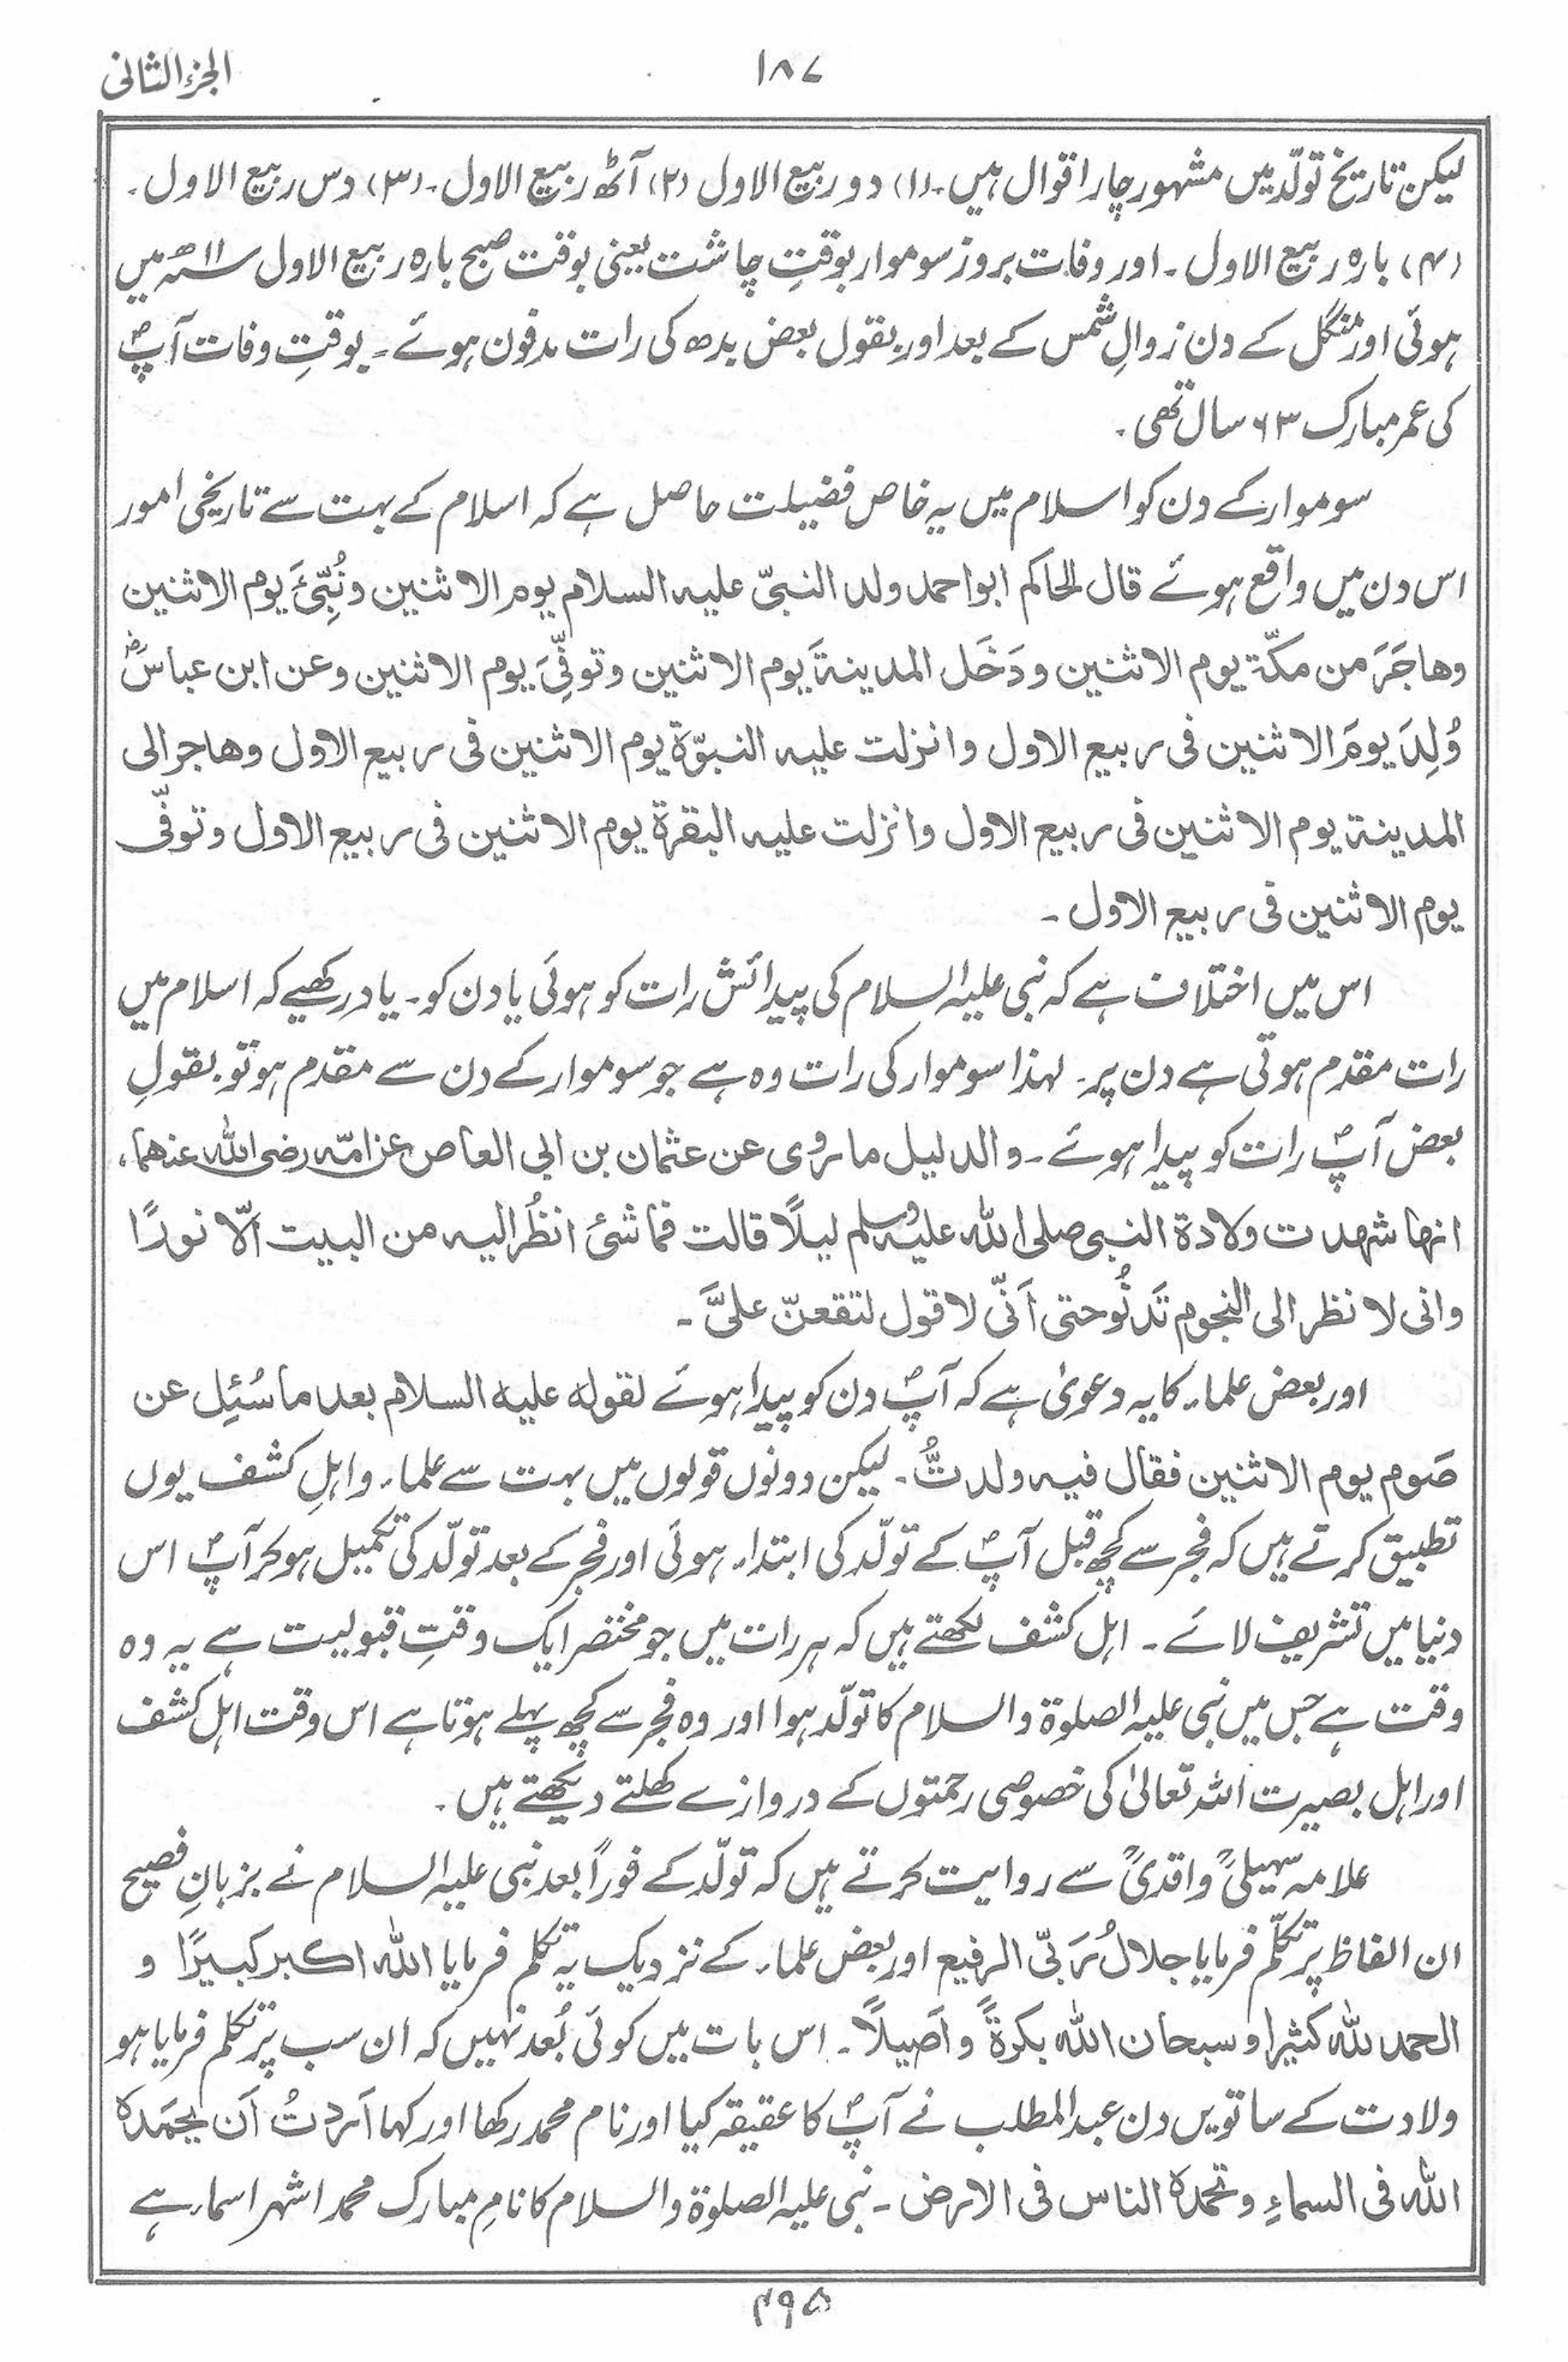 الجزء الثانی
۱۸۷
لیکن تاریخ تولّد میں مشہور چار اقوال ہیں۔ (۱) دو ربیع الاول (۲) آٹھ ربیع الاول۔ (۳) دس ربیع الاول۔
(۴) بارہ ربیع الاول۔ اور وفات بروز سوموار بوقتِ چاشت یعنی بوقت صبح بارہ ربیع الاول سنہ ۱۱ھ میں
ہوئی اور منگل کے دن زوالِ شمس کے بعد اور بقول بعض بدھ کی رات مدفون ہوئے۔ بوقتِ وفات آپؐ
کی عمر مبارک ۶۳ سال تھی۔
سوموار کے دن کو اسلام میں یہ خاص فضیلت حاصل ہے کہ اسلام کے بہت سے تاریخی امور
اس دن میں واقع ہوئے قال الحاکم ابو احمد ولد النبیّ علیہ السلام یوم الاثنین ونُبِّیَٔ یوم الاثنین
وھاجَرَ من مکّۃ یوم الاثنین ودَخَل المدینۃَ یوم الاثنین وتوفِّیَ یوم الاثنین وعن ابن عباسؓ
وُلِدَ یومَ الاثنین فی ربیع الاول وانزلت علیہ النبوّۃ یوم الاثنین فی ربیع الاول وھاجر الی
المدینۃ یوم الاثنین فی ربیع الاول وانزلت علیہ البقرۃ یوم الاثنین فی ربیع الاول وتوفّی
یوم الاثنین فی ربیع الاول۔
اس میں اختلاف ہے کہ نبی علیہ السلام کی پیدائش رات کو ہوئی یا دن کو۔ یاد رکھیے کہ اسلام میں
رات مقدم ہوتی ہے دن پر۔ لہذا سوموار کی رات وہ ہے جو سوموار کے دن سے مقدم ہو تو بقولِ
بعض آپؐ رات کو پیدا ہوئے۔ والدلیل ما روی عن عثمان بن ابی العاص عن امّہ رضی اللہ عنھما،
انھا شھدت ولادۃ النبی صلی اللہ علیہ وسلم لیلًا قالت فما شیٔ انظُر الیہ من البیت الّا نورًا
وانی لانظر الی النجوم تَدنُو حتی اَنّی لاقول لتقعنّ علیَّ۔
اور بعض علماء کا یہ دعویٰ ہے کہ آپؐ دن کو پیدا ہوئے لقولہ علیہ السلام بعد ما سُئِل عن
صَوم یوم الاثنین فقال فیہ ولدتُّ۔ لیکن دونوں قولوں میں بہت سے علماء واہلِ کشف یوں
تطبیق کرتے ہیں کہ فجر سے کچھ قبل آپؐ کے تولّد کی ابتداء ہوئی اور فجر کے بعد تولّد کی تکمیل ہو کر آپؐ اس
دنیا میں تشریف لائے۔ اہل کشف لکھتے ہیں کہ ہر رات میں جو مختصر ایک وقتِ قبولیت ہے یہ وہ
وقت ہے جس میں نبی علیہ الصلوۃ والسلام کا تولّد ہوا اور وہ فجر سے کچھ پہلے ہوتا ہے اس وقت اہل کشف
اور اہل بصیرت اللہ تعالیٰ کی خصوصی رحمتوں کے دروازے کھلتے دیکھتے ہیں۔
علامہ سہیلیؒ واقدیؒ سے روایت کرتے ہیں کہ تولّد کے فوراً بعد نبی علیہ السلام نے بزبانِ فصیح
ان الفاظ پر تکلّم فرمایا جلالُ ربّی الرفیع اور بعض علماء کے نزدیک یہ تکلم فرمایا اللہ اکبر کبیرًا و
الحمد للہ کثیرا و سبحان اللہ بکرۃً واَصیلاً۔ اس بات میں کوئی بُعد نہیں کہ ان سب پر تکلم فرمایا ہو
ولادت کے ساتویں دن عبد المطلب نے آپؐ کا عقیقہ کیا اور نام محمد رکھا اور کہا اَردتُ اَن یحمَدہ
اللہ فی السماءِ وتحمدہ الناس فی الارض۔ نبی علیہ الصلوۃ والسلام کا نامِ مبارک محمد اشہر اسماء ہے
۴۹۵